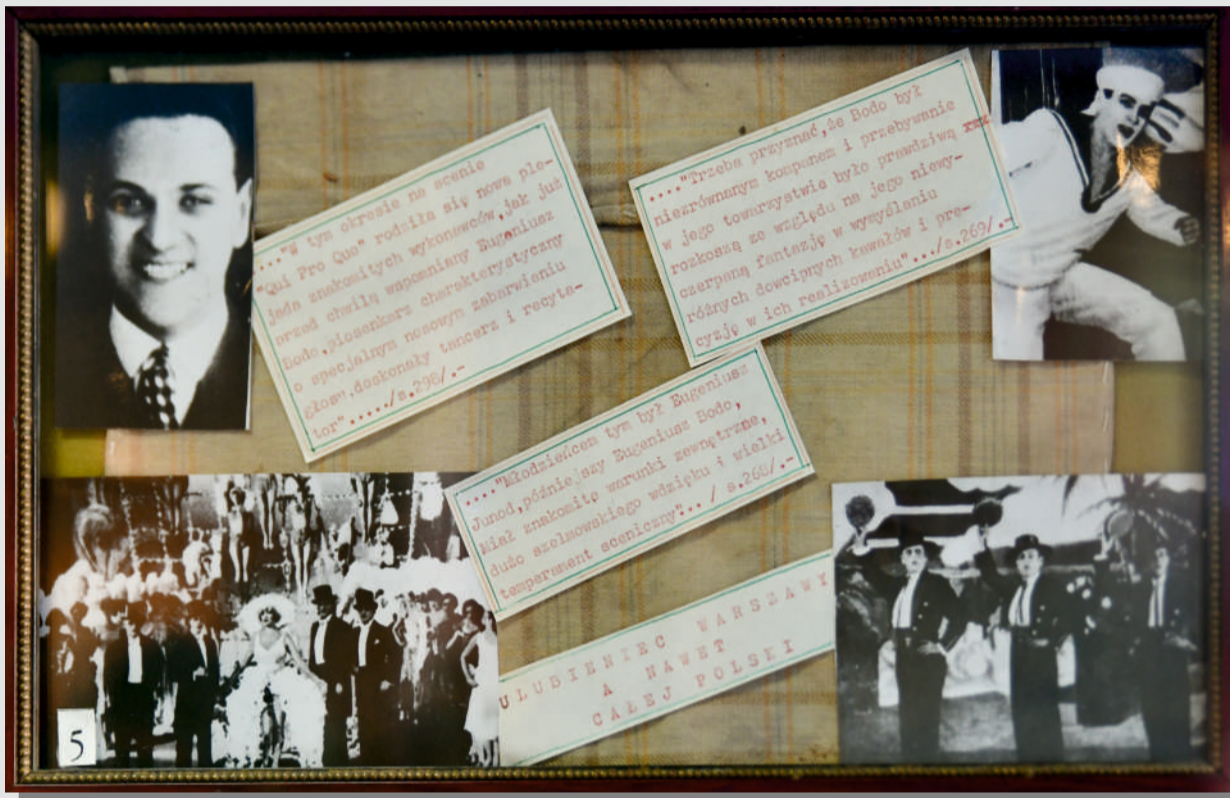 ...."W tym okresie na scenie
"Qui Pro Quo" rodziła się nowa ple-
jada znakomitych wykonawców,jak już
przed chwilą wspomniany Eugeniusz
Bodo,piosenkarz charakterystyczny
o specjalnym nosowym zabarwieniu
głosu,doskonały tancerz i recyta-
tor"...../s.298/.-
...."Trzeba przyznać,że Bodo był
niezrównanym kompanem i przebywanie
w jego towarzystwie było prawdziwą xxz
rozkoszą ze względu na jego niewy-
czerpaną fantazję w wymyślaniu
różnych dowcipnych kawałów i pre-
cyzję w ich realizowaniu".../s.269/.-
...."Młodzieńcem tym był Eugeniusz
Junod,późniejszy Eugeniusz Bodo,
Miał znakomite warunki zewnętrzne,
dużo szelmowskiego wdzięku i wielki
temperament sceniczny".../ s.268/.-
ULUBIENIEC WARSZAWY
A NAWET
CAŁEJ POLSKI
5